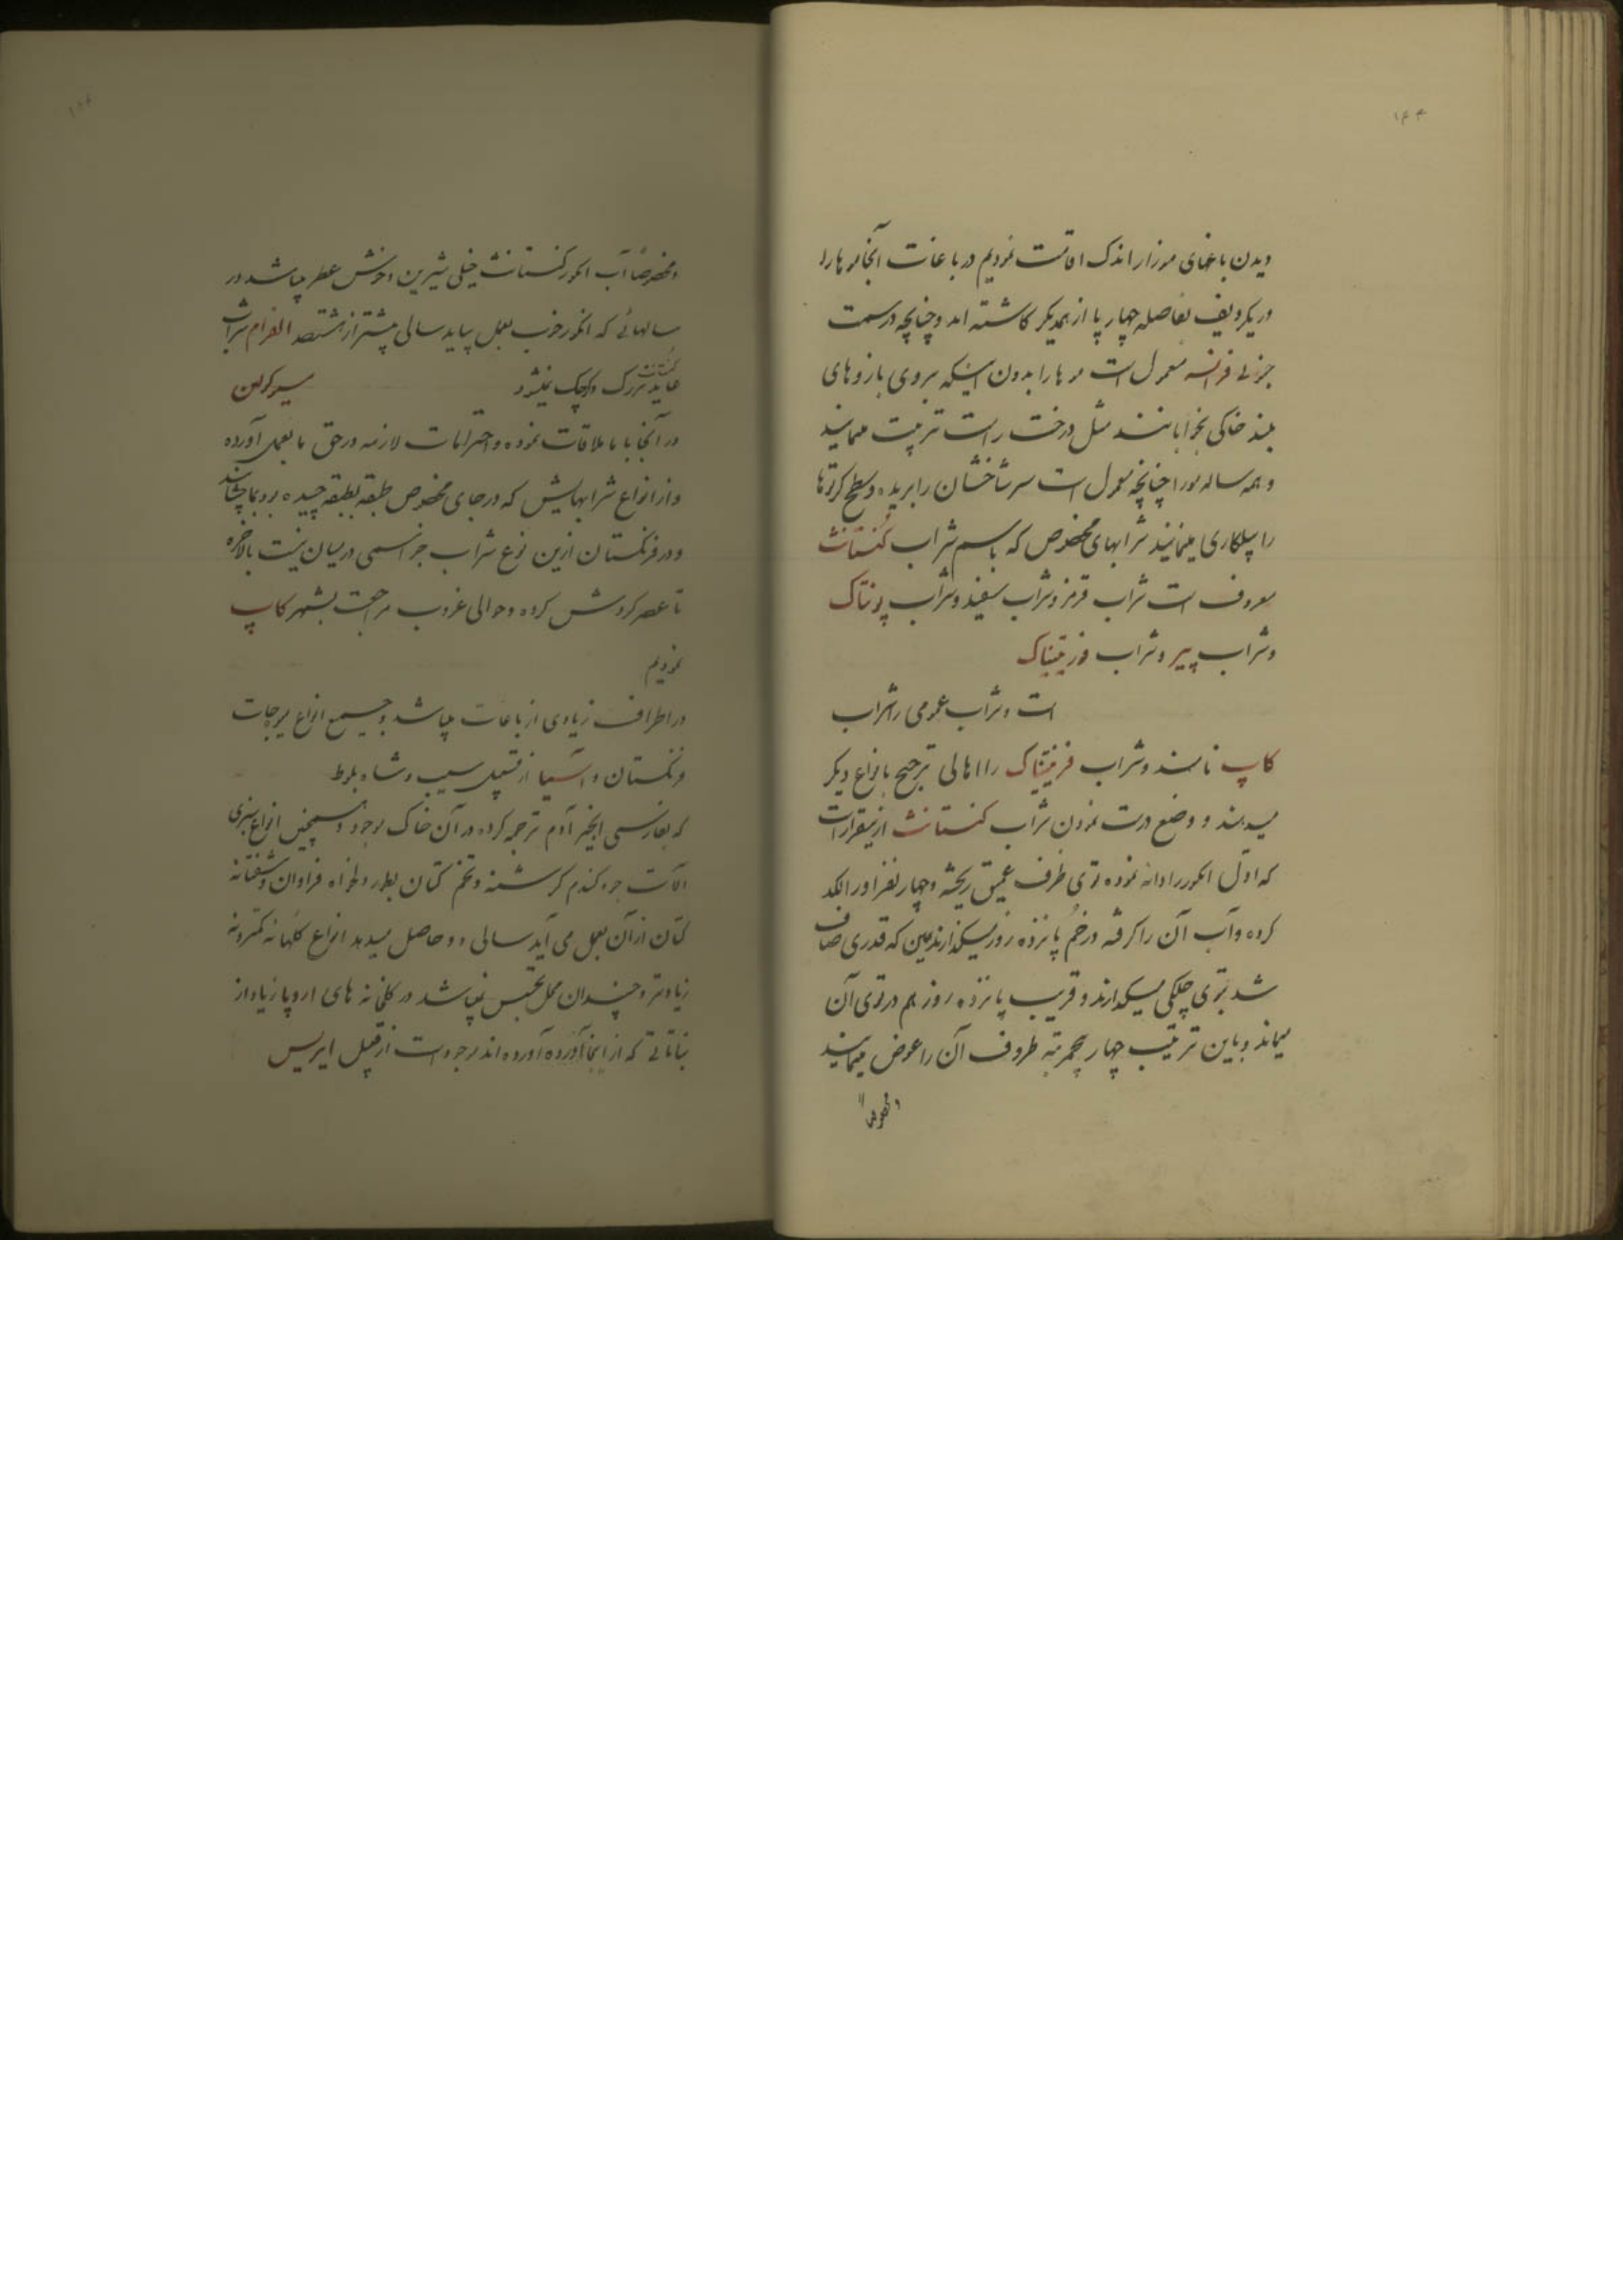 ۱۴۳
دیدن باغهای موزار اندک اقامت نمودیم در باغات آنجا موها را
در یکردیف بفاصله چهار پا از همدیکر کاشته اند و چنانچه در سمت
جنوبی فرانسه معمول است موها را بدون اینکه بروی بازوهای
بلند خاکی بخوابانند مثل درخت راست تربیت مینمایند
و همه ساله مو را چنانچه معمول است سر شاخشان را بریده و سطح کرتها
را بیلکاری مینمایند شرابهای مخصوص که باسم شراب کنستانت
معروف است شراب قرمز و شراب سفید و شراب پونتاک
و شراب پیر و شراب فرنتیناک
است و شراب عمومی را شراب
کاپ نامند و شراب فرنتیناک را اهالی ترجیح بانواع دیکر
میدهند و وضع درست نمودن شراب کنستانت ازینقرار است
که اول انکور را دانه نموده توی ظرف عمیق ریخته و چهار نفر اورا لکد
کرده و آب آن را کرفته در خم پانزده روز میکذارند همین که قدری صاف
شد بتوی چلکی میکذارند و قریب پانزده روز هم در توی آن
میماند و باین ترتیب چهار پنجمرتبه ظروف آن را عوض مینمایند
و مخصوصاً
و مخصوصاً آب انکور کنستانت خیلی شیرین و خوش عطر میباشد در
سالهائی که انکور خوب بعمل بیاید سالی بیشتر از هشتصد انفرام شراب
کنستانت
عاید بزرک و کوچک نمیشود سیر کولن
در آنجا با ما ملاقات نموده و احترامات لازمه در حق ما بعمل آورده
و از انواع شرابهایش که در جای مخصوص طبقه بطبقه چیده بود بما چشانید
و در فرنکستان ازین نوع شراب جز اسمی در میان نیست بالاخره
تا عصر کردش کرده و حوالی غروب مراجعت بشهر کاپ
نمودیم
در اطراف زیادی از باغات میباشد و جمیع انواع میوجات
فرنکستان و آسیا از قبیل سیب و شاه بلوط
که بفارسی انجیر آدم ترجمه کرده در آن خاک موجود و همچنین انواع سبزی
آلات جو کندم کرشنه و تخم کتان بطور دلخواه فراوان و
کتان از آن بعمل می آید سالی دو حاصل میدهد انواع کلها نه کمتر و نه
زیادتر و چندان محل تجسس نمیباشد در کلخانه های اروپا زیاد از
نباتاتی که از اینجا آورده آورده اند موجود است از قبیل ایریس